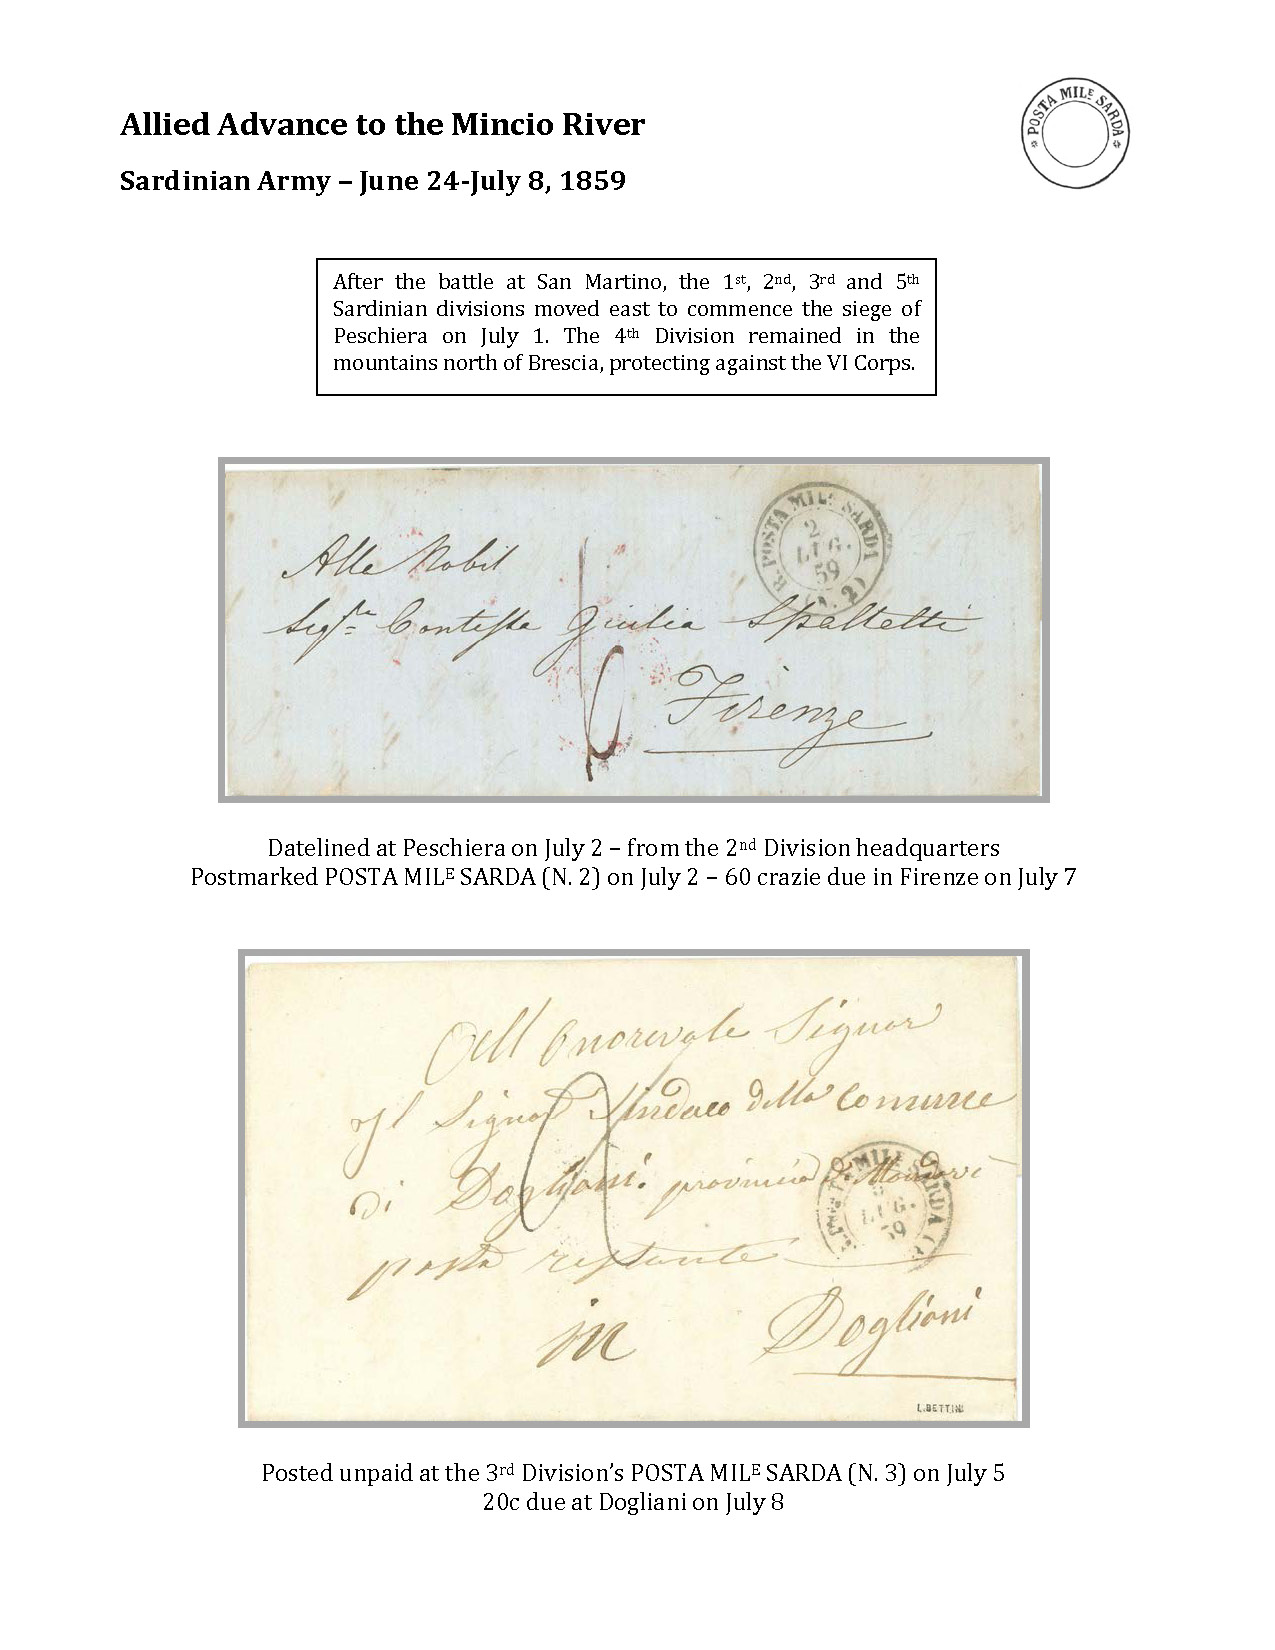 Allied Advance to the Mincio River
POSTA MILE SARDA
Sardinian Army – June 24-July 8, 1859
After the battle at San Martino, the 1st, 2nd, 3rd and 5th
Sardinian divisions moved east to commence the siege of
Peschiera on July 1. The 4th Division remained in the
mountains north of Brescia, protecting against the VI Corps.
R. POSTA MILE SARDA
2
LUG.
59
(N. 2)
Alla Nobil
Contessa Giulia Spalletti
Firenze
Datelined at Peschiera on July 2 – from the 2nd Division headquarters
Postmarked POSTA MILE SARDA (N. 2) on July 2 – 60 crazie due in Firenze on July 7
All Onorevole Signor
Il Signor Sindaco della Comune
di Dogliani. provincia di Mondovi
MILE SARDA
LUG.
59
posta restante
in Dogliani
L.BETTINI
Posted unpaid at the 3rd Division’s POSTA MILE SARDA (N. 3) on July 5
20c due at Dogliani on July 8